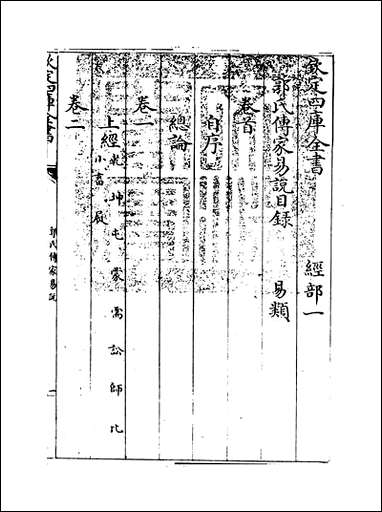 欽定四庫全書　經部一
郭氏傳家易說目録　易類
卷首
自序
總論
卷一
上經乾　坤　屯　蒙　需　訟　師　比
小畜　履
卷二
欽定四庫全書
郭氏傳家易說
一